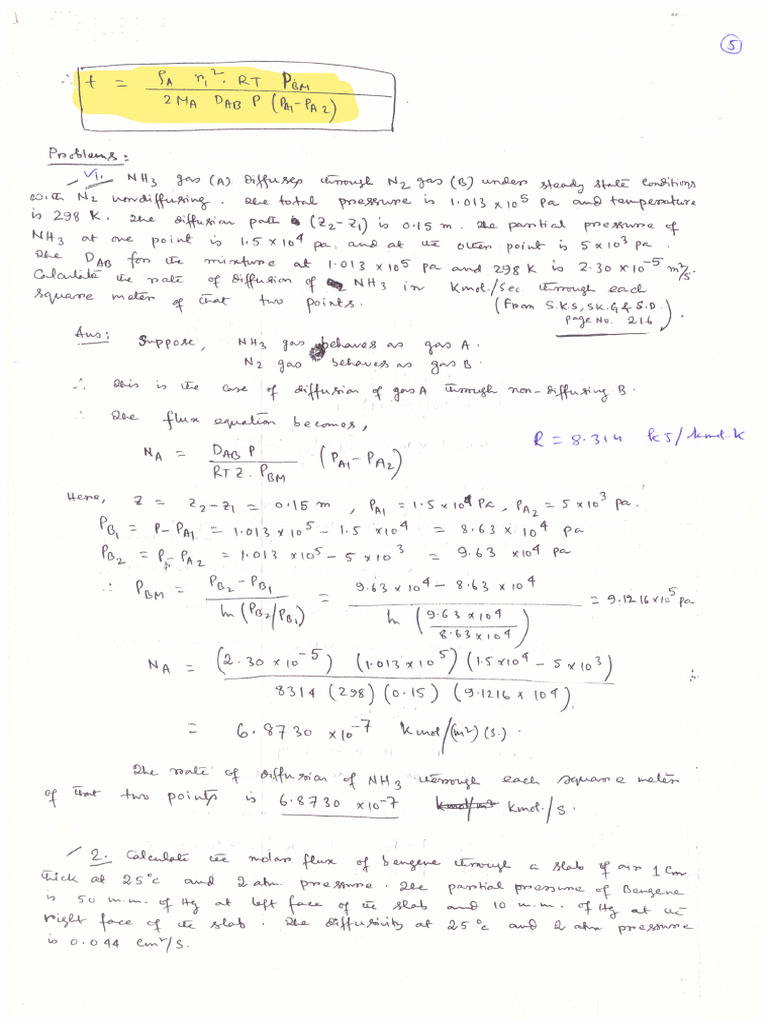 5
∴ t = ρA r1². RT PBM / 2 MA DAB P (PA1 - PA2)
Problems:
1. NH3 gas (A) diffuses through N2 gas (B) under steady state conditions
with N2 nondiffusing. The total pressure is 1.013 x 10^5 Pa and temperature
is 298 K. The diffusion path (Z2 - Z1) is 0.15 m. The partial pressure of
NH3 at one point is 1.5 x 10^4 pa and at the other point is 5 x 10^3 pa.
The DAB for the mixture at 1.013 x 10^5 pa and 298 K is 2.30 x 10^-5 m²/s.
Calculate the rate of diffusion of NH3 in Kmol./Sec through each
square meter of that two points.
(From S.K.S, SK.G & S.D.
page No. 216).
Ans: Suppose, NH3 gas behaves as gas A.
N2 gas behaves as gas B.
∴ This is the case of diffusion of gas A through non-diffusing B.
∴ The flux equation becomes,
R = 8.314 kJ/kmol.K
NA = DAB P / RT Z. PBM (PA1 - PA2)
Here, Z = Z2 - Z1 = 0.15 m, PA1 = 1.5 x 10^4 Pa, PA2 = 5 x 10^3 pa.
PB1 = P - PA1 = 1.013 x 10^5 - 1.5 x 10^4 = 8.63 x 10^4 pa
PB2 = P - PA2 = 1.013 x 10^5 - 5 x 10^3 = 9.63 x 10^4 pa
∴ PBM = PB2 - PB1 / ln (PB2/PB1) = 9.63 x 10^4 - 8.63 x 10^4 / ln (9.63 x 10^4 / 8.63 x 10^4) = 9.1216 x 10^5 pa
NA = (2.30 x 10^-5) (1.013 x 10^5) (1.5 x 10^4 - 5 x 10^3) / 8314 (298) (0.15) (9.1216 x 10^4) ∴
= 6.8730 x 10^-7 kmol/(m²)(s.).
The rate of diffusion of NH3 through each square meter
of that two points is 6.8730 x 10^-7 kmol/m² Kmol./s.
2. Calculate the molar flux of benzene through a slab of air 1 Cm
thick at 25°c and 2 atm. pressure. The partial pressure of Benzene
is 50 m.m. of Hg at left face of the slab and 10 m.m. of Hg at the
right face of the slab. The diffusivity at 25°c and 2 atm pressure
is 0.044 Cm²/S.